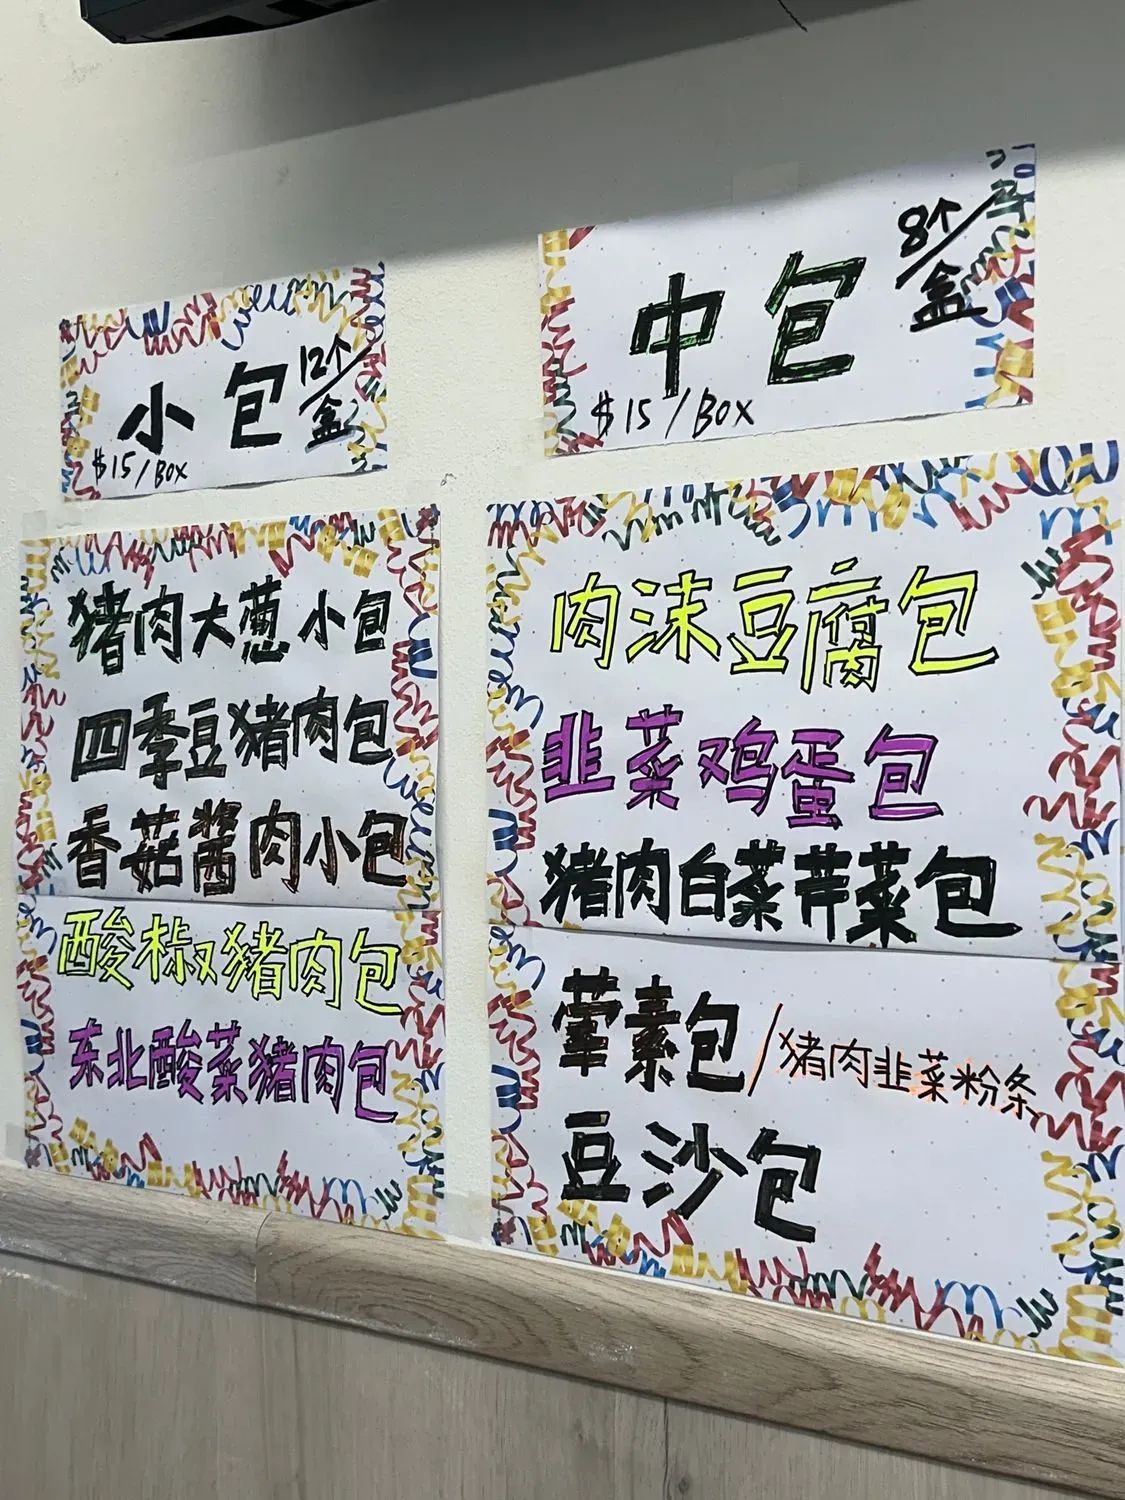 小包 12个/盒
$15/BOX
猪肉大葱小包
四季豆猪肉包
香菇酱肉小包
酸椒猪肉包
东北酸菜猪肉包
中包 8个/盒
$15/BOX
肉沫豆腐包
韭菜鸡蛋包
猪肉白菜芹菜包
荤素包/猪肉韭菜粉条
豆沙包